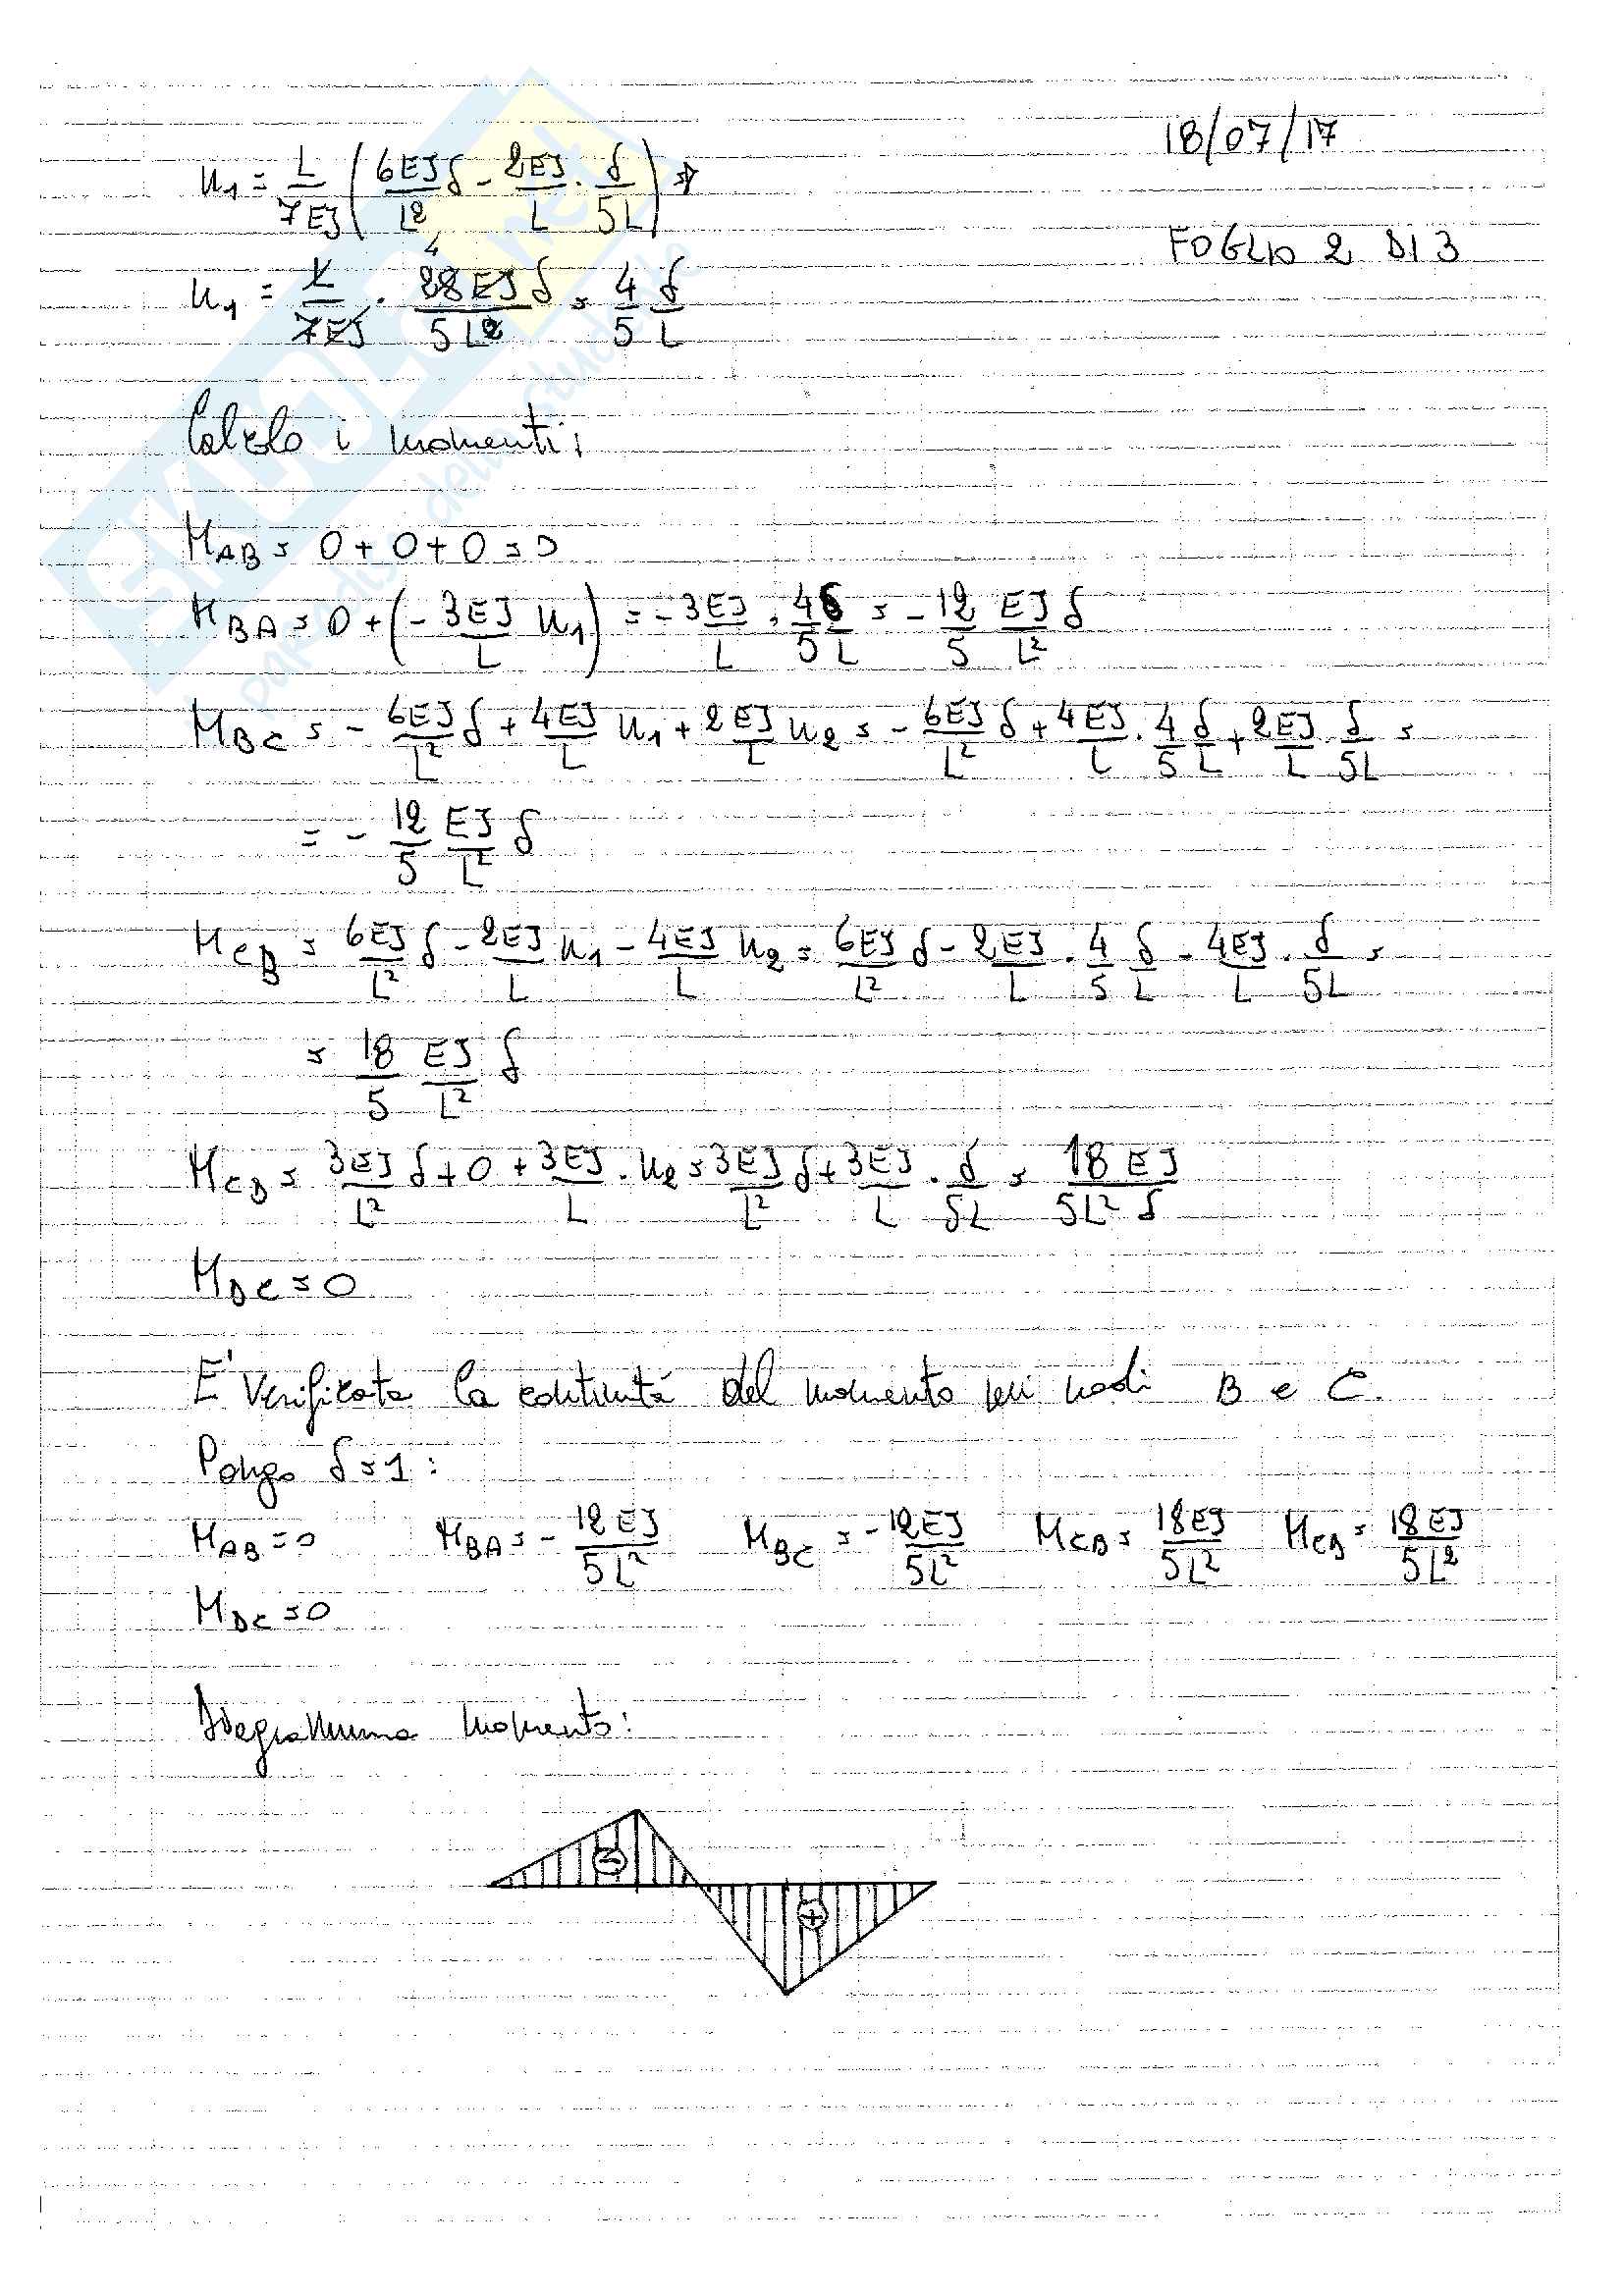 18/07/17
u₁ = L/7EJ (6EJ/L² δ - 2EJ/L · δ/5L) ⇒
FOGLIO 2 DI 3
u₁ = L/7EJ · 28EJ/5L² δ = 4/5 δ/L
4
Calcolo i momenti:
M_AB = 0 + 0 + 0 = 0
M_BA = 0 + (- 3EJ/L u₁) = - 3EJ/L · 4/5 δ/L = - 12/5 EJ/L² δ
M_BC = - 6EJ/L² δ + 4EJ/L u₁ + 2EJ/L u₂ = - 6EJ/L² δ + 4EJ/L · 4/5 δ/L + 2EJ/L · δ/5L =
= - 12/5 EJ/L² δ
M_CB = 6EJ/L² δ - 2EJ/L u₁ - 4EJ/L u₂ = 6EJ/L² δ - 2EJ/L · 4/5 δ/L - 4EJ/L · δ/5L =
= 18/5 EJ/L² δ
M_CD = 3EJ/L² δ + 0 + 3EJ/L · u₂ = 3EJ/L² δ + 3EJ/L · δ/5L = 18EJ/5L² δ
M_DC = 0
E' verificata la continuità del momento nei nodi B e C.
Pongo δ = 1:
M_AB = 0 M_BA = - 12EJ/5L² M_BC = - 12EJ/5L² M_CB = 18EJ/5L² M_CD = 18EJ/5L²
M_DC = 0
Diagramma momento:
-
+